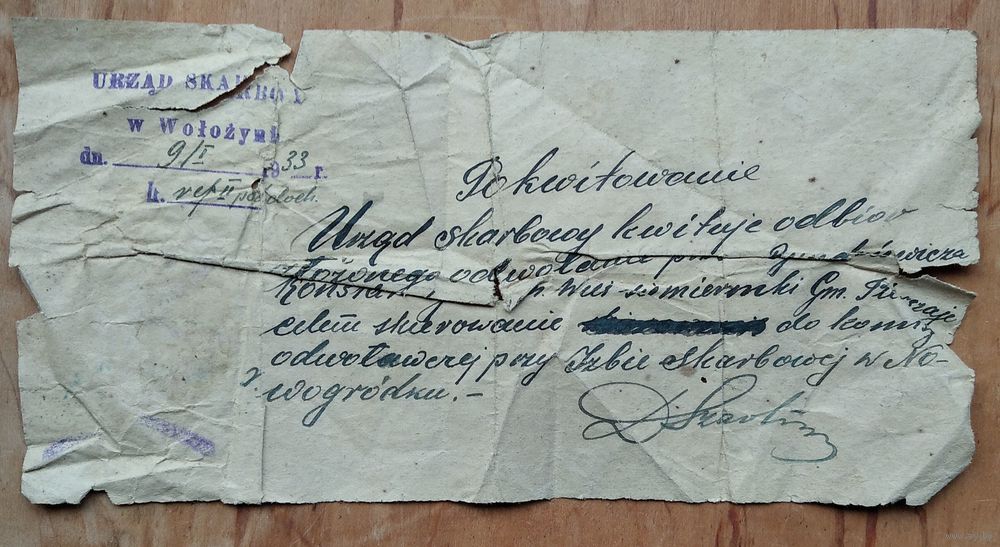 URZĄD SKARBOWY
w Wołożyni
dn. 9/I 1933 r.
L.
Pokwitowanie
Urząd skarbowy kwituje odbiór
złożonego odwołania
Konstan
Gm.
celem skierowanie do komisji
odwoławczej przy Izbie Skarbowej w No-
wogródku.-